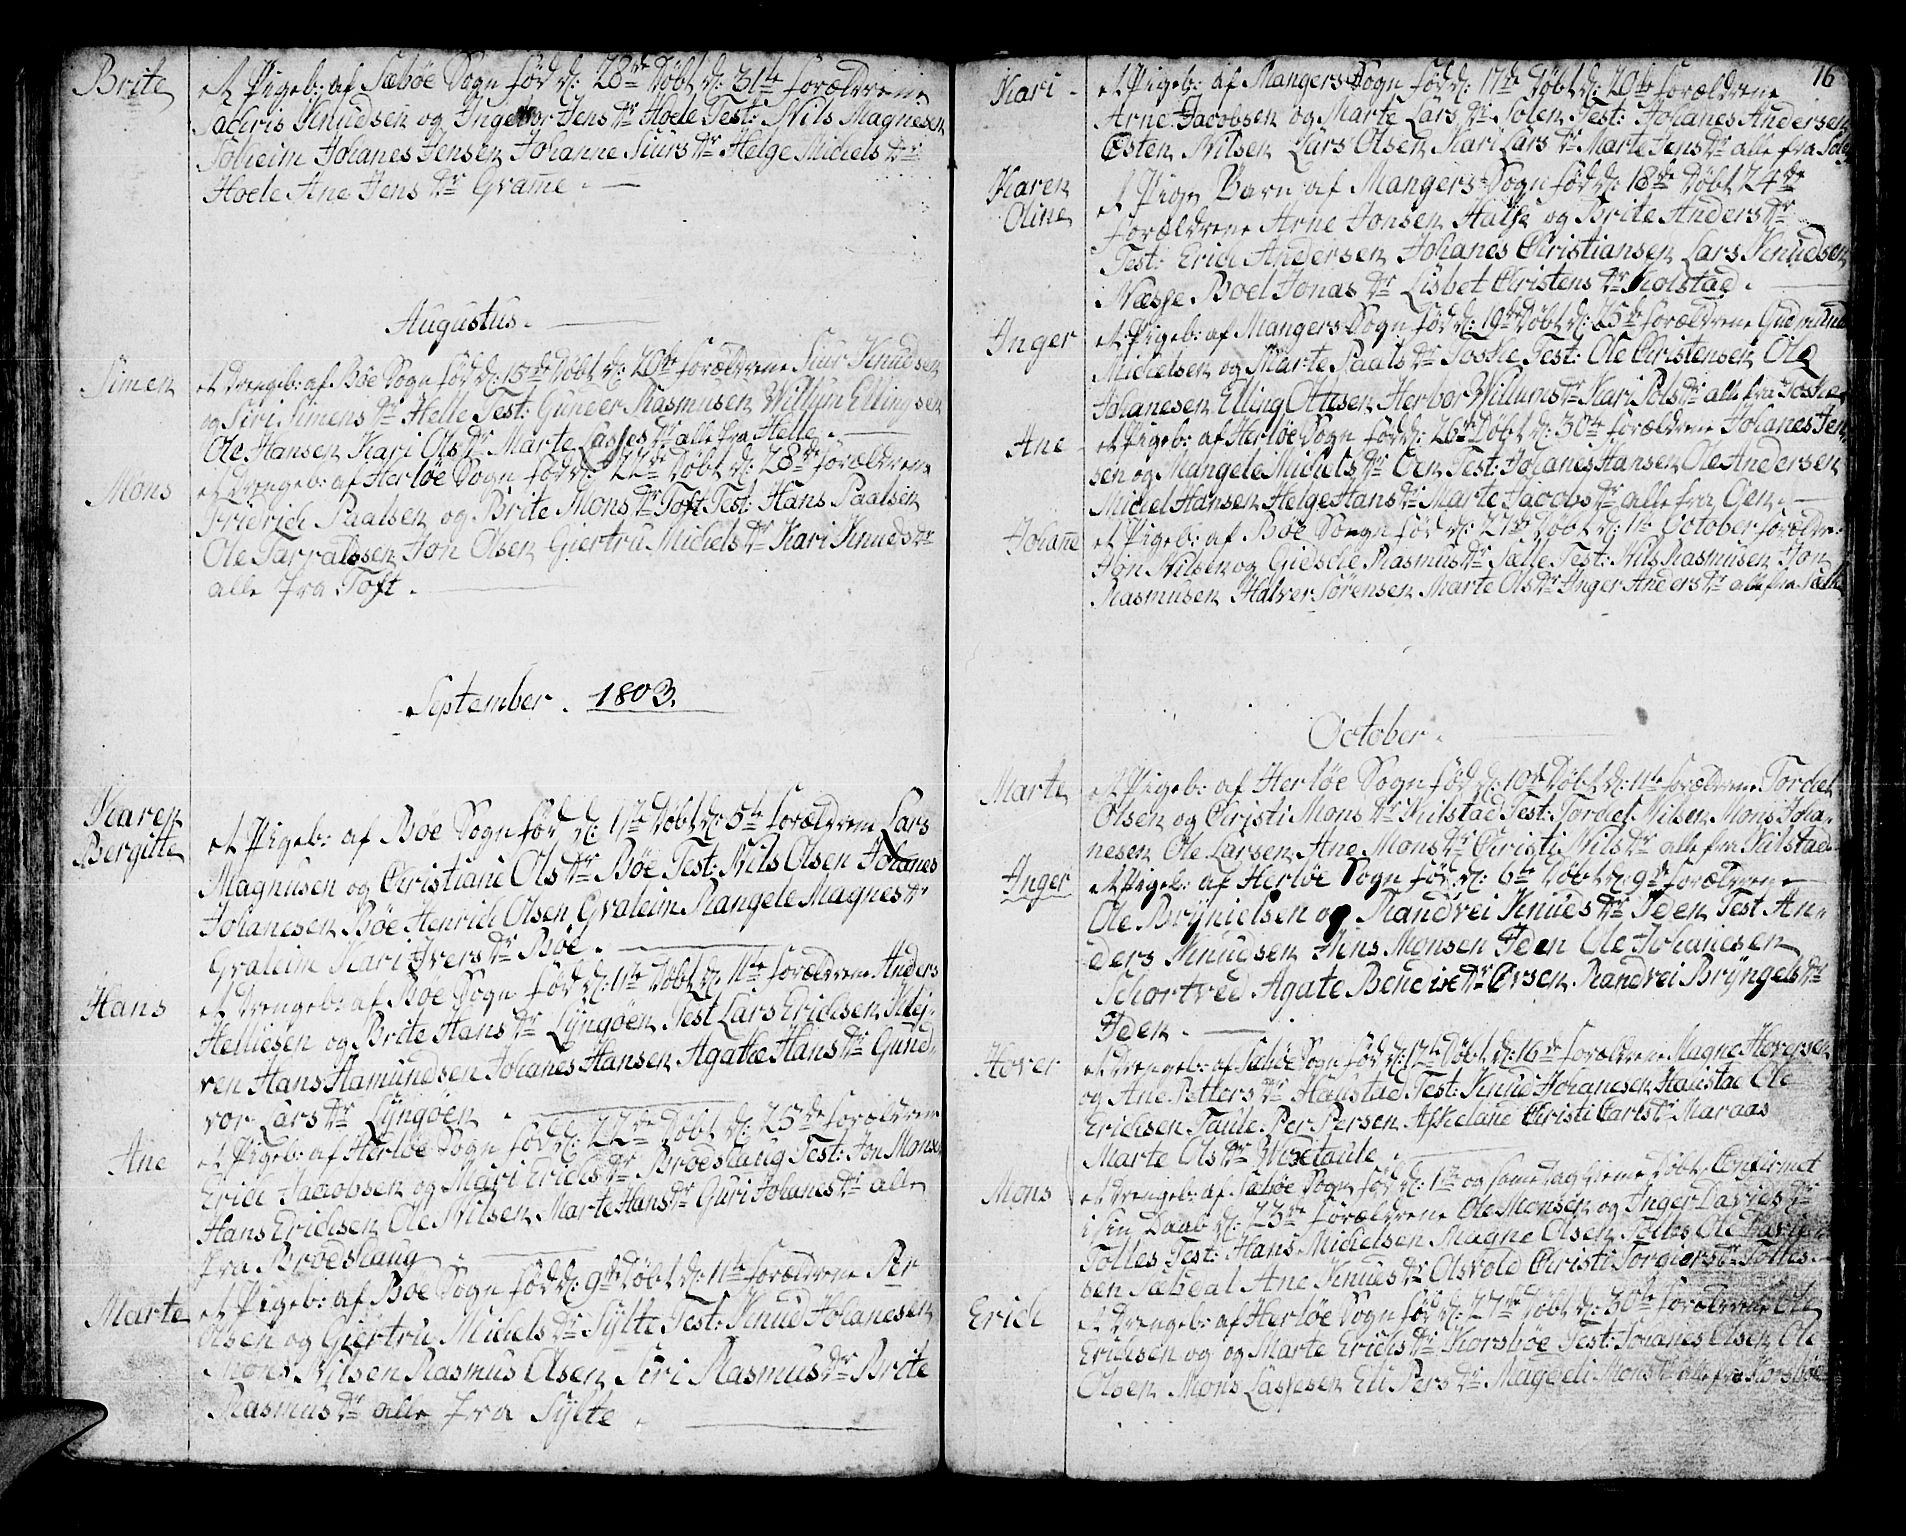 Brite
et Pigeb: af Sæbøe Sogn fød d: 28de Døbt d: 31te forældrene
Sacris Knudsen og Ingebor Jens dr Hoele Test: Nils Magnesen
Soheim Johanes Jensen Johanne Siurs dr Helge Michels dr
Hoele Ane Jens dr Grame.
Augustus.
Simen
et Drengeb: af Bøe Sogn fød d: 15de Døbt d: 20de forældrene Siur Knudsen
og Siri Simens dr Helle Test: Gunder Rasmusen Willum Ellingsen
Ole Hansen Kari Ols dr Marte Lasses dr alle fra Helle.
Mons
et Drengeb: af Herløe Sogn fød d: 22de Døbt d: 28de forældrene
Frierich Paalsen og Brite Mons dr Toft Test: Hans Paalsen
Ole Sarralssen Jon Olsen Giertru Michels dr Kari Knuds dr
alle fra Toft.
September. 1803.
Karen
Bergitte
et Pigeb: af Bøe Sogn fød d: 1ste Døbt d: 5te forældrene Lars
Magnusen og Christiane Ols dr Bøe Test: Nils Olsen Johanes
Johanesen Bøe Henrich Olsen Graleim Rangele Magnes dr
Graleim Kari Ivers dr Bøe.
Hans
et Drengeb: af Bøe Sogn fød d: 1ste Døbt d: 11te forældrene Anders
Helliesen og Brite Hans dr Lyngøen Test Lars Erichsen Klei-
ven Hans Hamundsen Johanes Hansen Agathe Hans dr Gund-
vor Lars dr Lyngøen.
Ane
et Pigeb: af Herløe Sogn fød d: 22de Døbt d: 25de forældrene
Erich Jacobsen og Mari Erichs dr Brodshaug Test: Jon Monsen
Hans Erichsen Ole Nilsen Marte Hans dr Guri Johanes dr alle
fra Brodshaug
Marte
et Pigeb: af Bøe Sogn fød d: 9de Døbt d: 11te forældrene Per
Olsen og Giertru Michels dr Sylte Test: Knud Johanesen
Nilsen Rasmus Olsen Siri Rasmus dr Brite
Rasmus dr alle fra Sylte.
16
Kari
et Pigeb: af Mangers Sogn fød d: 17de Døbt d: 20de forældrene
Arne Jacobsen og Marte Lars dr Solen Test: Johanes Andersen
Østen Nilsen Lars Olsen Kari Lars dr Marte Jens dr alle fra
Karen
Oline
et Pige Barn af Mangers Sogn fød d: 18de Døbt 24de
forældrene Arne Jonsen Halse og Brite Anders dr
Test: Erich Andersen Johanes Christiansen Lars Knudsen
Næsse Boel Jonas dr Lisbet Christens dr Kolstad.
Inger
et Pigeb: af Mangers Sogn fød d: 19de Døbt d: 25de forældrene Gudmund
Michelsen og Marte Paals dr Toske Test: Ole Christensen Ole
Johanesen Elling Olsen Herbor Willums dr Kari Pols dr alle fra Toske
Ane
et Pigeb: af Herløe Sogn fød d: 26de Døbt d: 30te forældrene Johanes Jen
sen og Mangele Michels dr Oen Test: Johanes Hansen Ole Andersen
Michel Hansen Helge Hans dr Marte Jacobs dr alle fra Oen.
Johane
et Pigeb: af Bøe Sogn fød d: 27de Døbt d: 1te October forældre:
Jon Nilsen og Giesche Rasmus dr Sælle Test: Nils Rasmusen Jon
Rasmusen Halver Sørensen Marte Ols dr Inger Anders dr alle fra Sælle
October.
Marte
et Pigeb: af Herløe Sogn fød d: 10de Døbt d: 11te forældrene Tordel
Olsen og Christi Mons dr Nilstad Test: Tordel Nilsen Mons Joha-
nesen Ole Larsen Ane Mons dr Christi Nils dr alle fra Nilstad
Inger
et Pigeb: af Herløe Sogn fød d: 6te Døbt d: 9de forældrene
Ole Brynielsen og Randvei Knues dr Iden Test An-
ders Knudsen Hins Monsen Iden Ole Johanesen
Schortved Agate Benc dr Ørsen Randvei Bryngels dr
Iden.
Hover
et Drengeb: af Sæbøe Sogn fød d: 12te Døbt d: 16de forældrene Magne Hoversen
og Ane Petters dr Haugstad Test: Knud Johanesen Haustad Ole
Erichsen Taule Per Persen Askelane Christi Carls dr Maraas
Marte Ols dr Wixetaule.
Mons
et Drengeb: af Sæbøe Sogn fød d: 1te og same Dag Hieme Døbt Confirmet
i sin Daab d: 23de forældrene Ole Monsen og Inger Davids dr
Tolles Test: Hans Michelsen Magne Olsen Tolles Ole
sen Ane Knues dr Olsvold Christi Torgiers dr Tolles.
Erich
et Drengeb: af Herløe Sogn fød d: 27de Døbt d: 30te forældrene Ole
Erichsen og og Marte Erichs dr Korsbøe Test: Johanes Olsen Ole
Olsen Mons Lassesen Eli Pers dr Mageli Mons dr alle fra Korsbøe